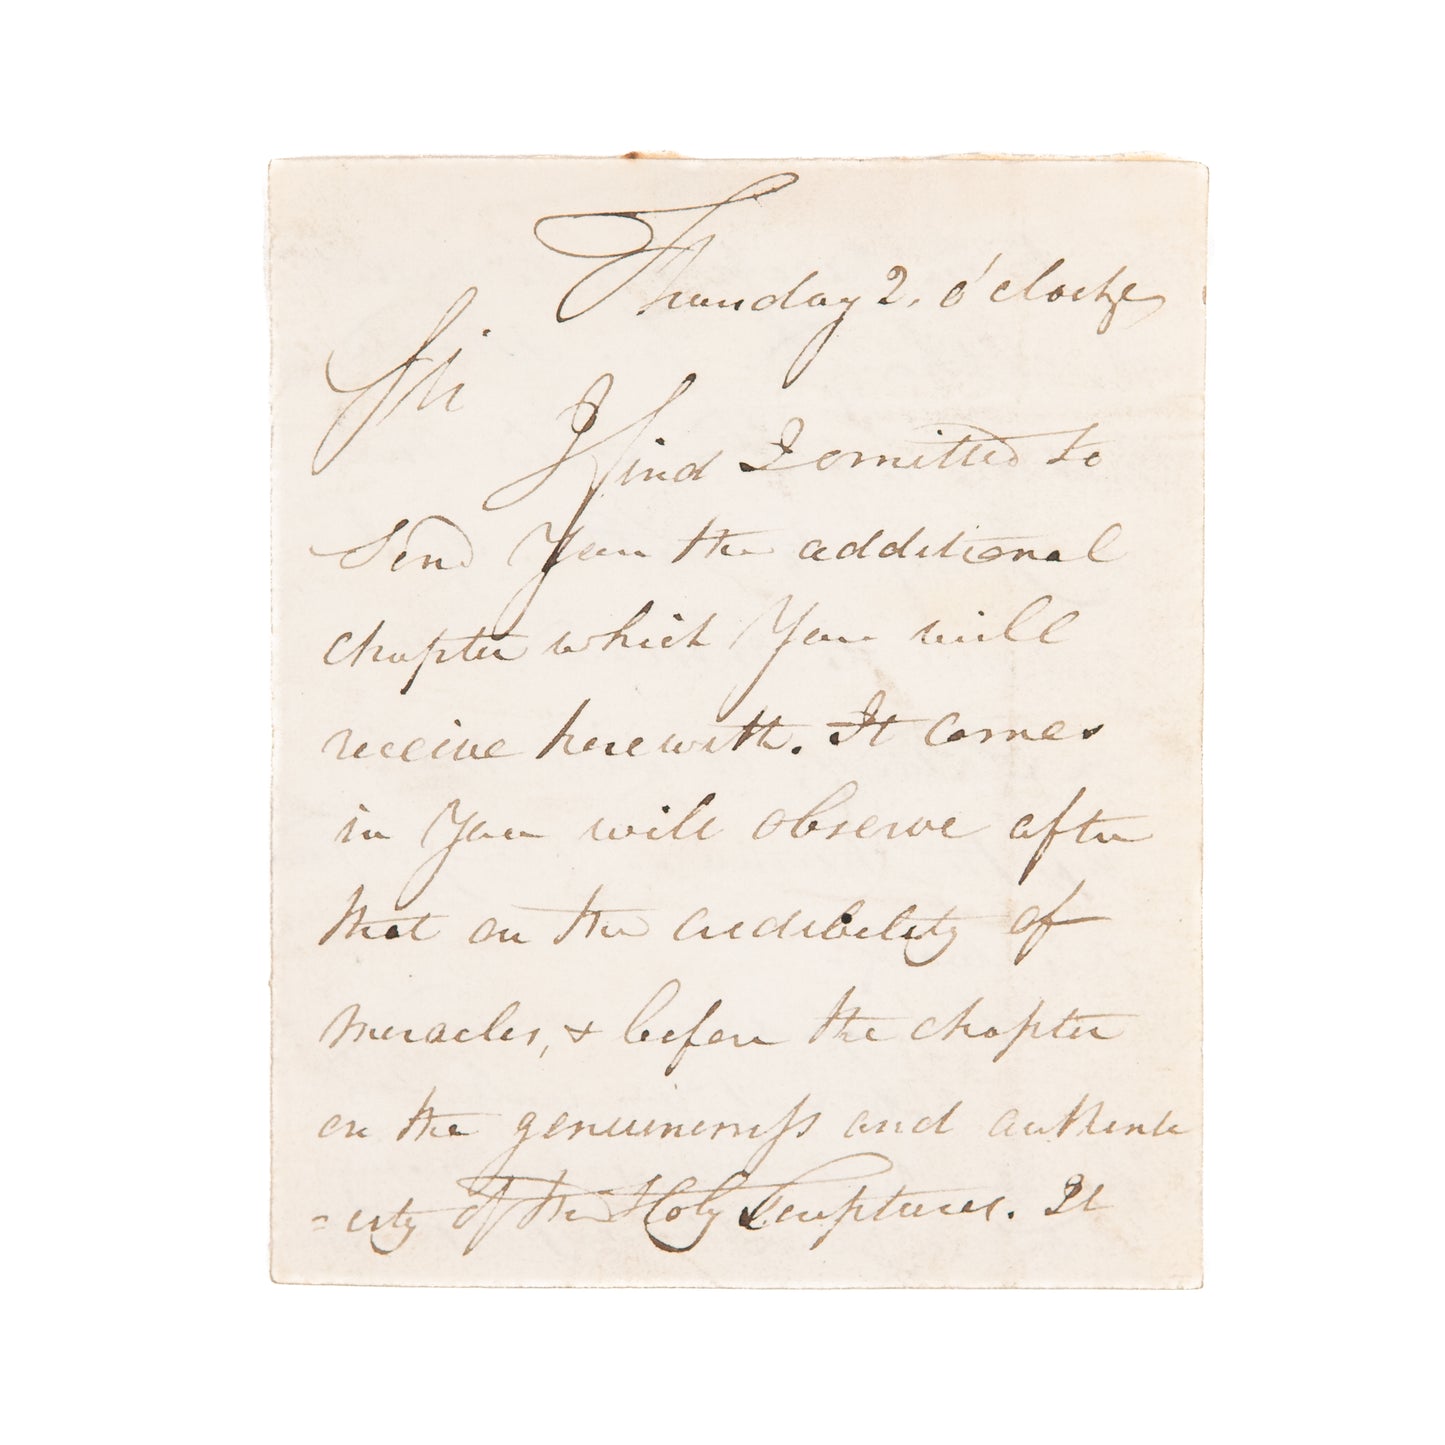 Thursday 2. o'clock
Sir
I find I omitted to
send You the additional
chapter which You will
receive herewith. It comes
in You will observe after
that on the credibility of
miracles, & before the chapter
on the genuineness and authenti
=city of the Holy Scriptures. It